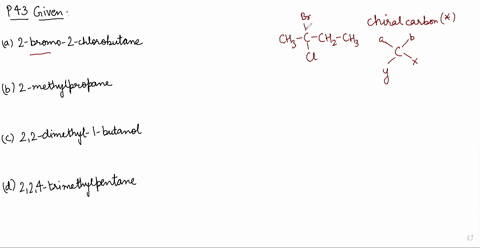 P43 Given.
(a) 2-bromo-2-chlorobutane
Br
CH3-C-CH2-CH3
Cl
chiral carbon (*)
a b
C
y x
(b) 2-methylpropane
(c) 2,2-dimethyl-1-butanol
(d) 2,2,4-trimethylpentane